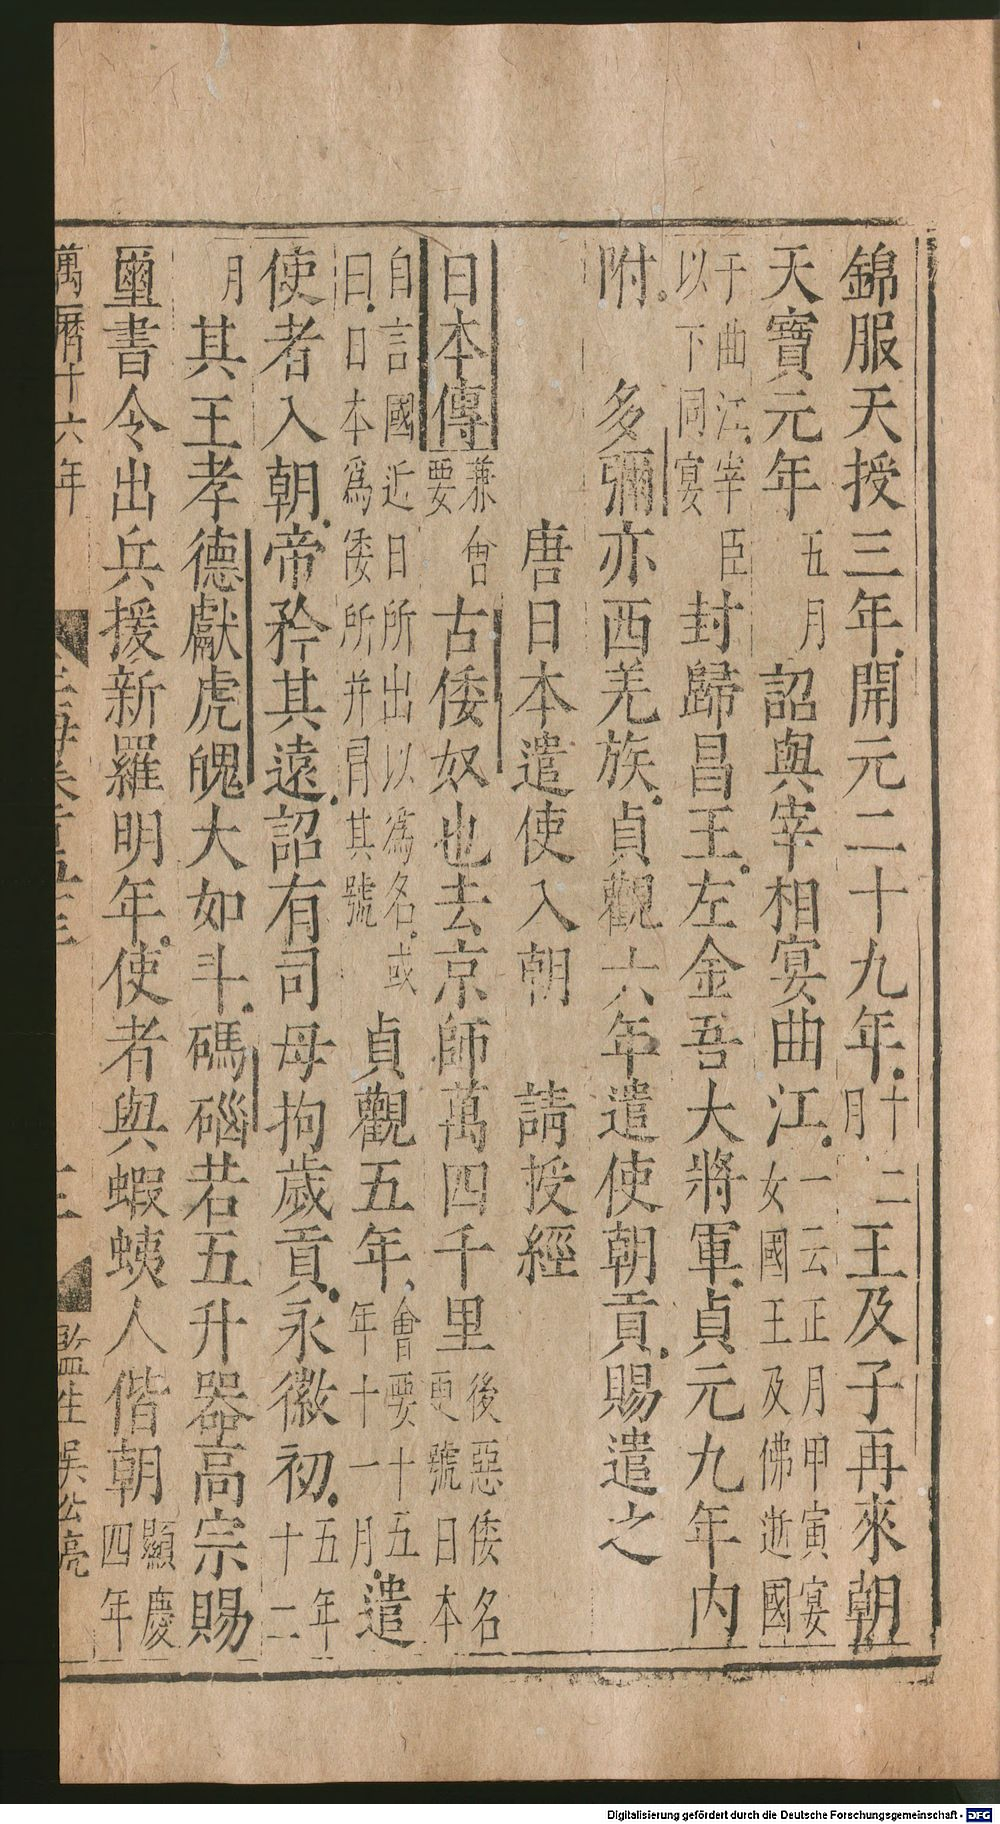 錦服天授三年開元二十九年十二月王及子再來朝
天寶元年五月詔與宰相宴曲江一云正月甲寅宴女國王及佛逝國
于曲江宰臣以下同宴封歸昌王左金吾大將軍貞元九年內
附多彌亦西羌族貞觀六年遣使朝貢賜遣之
唐日本遣使入朝 請授經
日本傳兼會要古倭奴也去京師萬四千里後惡倭名更號日本
自言國近日所出以為名或曰日本為倭所并冒其號貞觀五年會要十五年十一月遣
使者入朝帝矜其遠詔有司毋拘歲貢永徽初五年十二
月其王孝德獻虎魄大如斗碼碯若五升器高宗賜
璽書令出兵援新羅明年使者與蝦蛦人偕朝顯慶四年
萬曆十六年 三 監生吳公亮
Digitalisierung gefördert durch die Deutsche Forschungsgemeinschaft - DFG